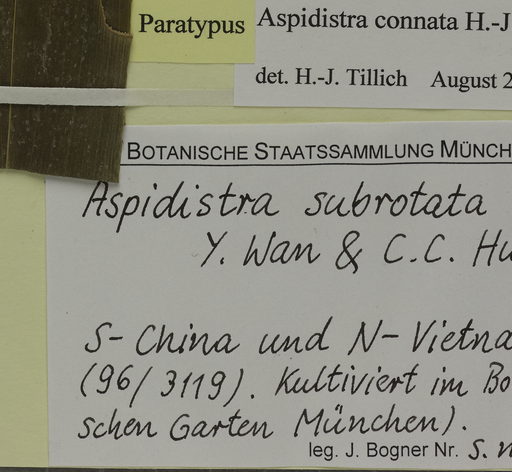 Paratypus
Aspidistra connata H.-J
det. H.-J. Tillich August 2
BOTANISCHE STAATSSAMMLUNG MÜNCH
Aspidistra subrotata
Y. Wan & C.C. Hu
S-China und N-Vietna
(96/3119). Kultiviert im Bo
schen Garten München).
leg. J. Bogner Nr. s. n